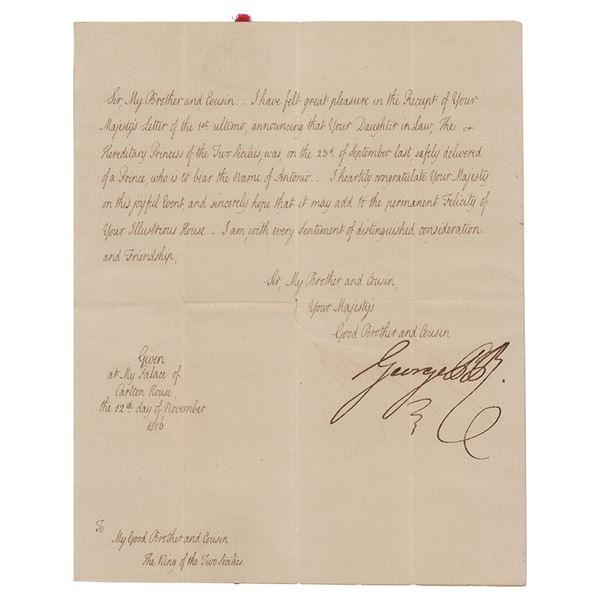 Sir, My Brother and Cousin_ I have felt great pleasure in the Receipt of Your
Majesty's Letter of the 1st ultimo, announcing that Your Daughter in Law, The
Hereditary Princess of the Two Sicilies, was on the 23d of September last safely delivered
of a Prince, who is to bear the Name of Antonio_ I heartily congratulate Your Majesty
on this joyful Event and sincerely hope that it may add to the permanent Felicity of
Your Illustrious House_ I am, with every sentiment of distinguished consideration
and Friendship,
Sir, My Brother and Cousin,
Your Majesty's
Good Brother and Cousin
George PR.
Given
at My Palace of
Carlton House,
the 12th day of November
1816
To
My Good Brother and Cousin
The King of the Two Sicilies.